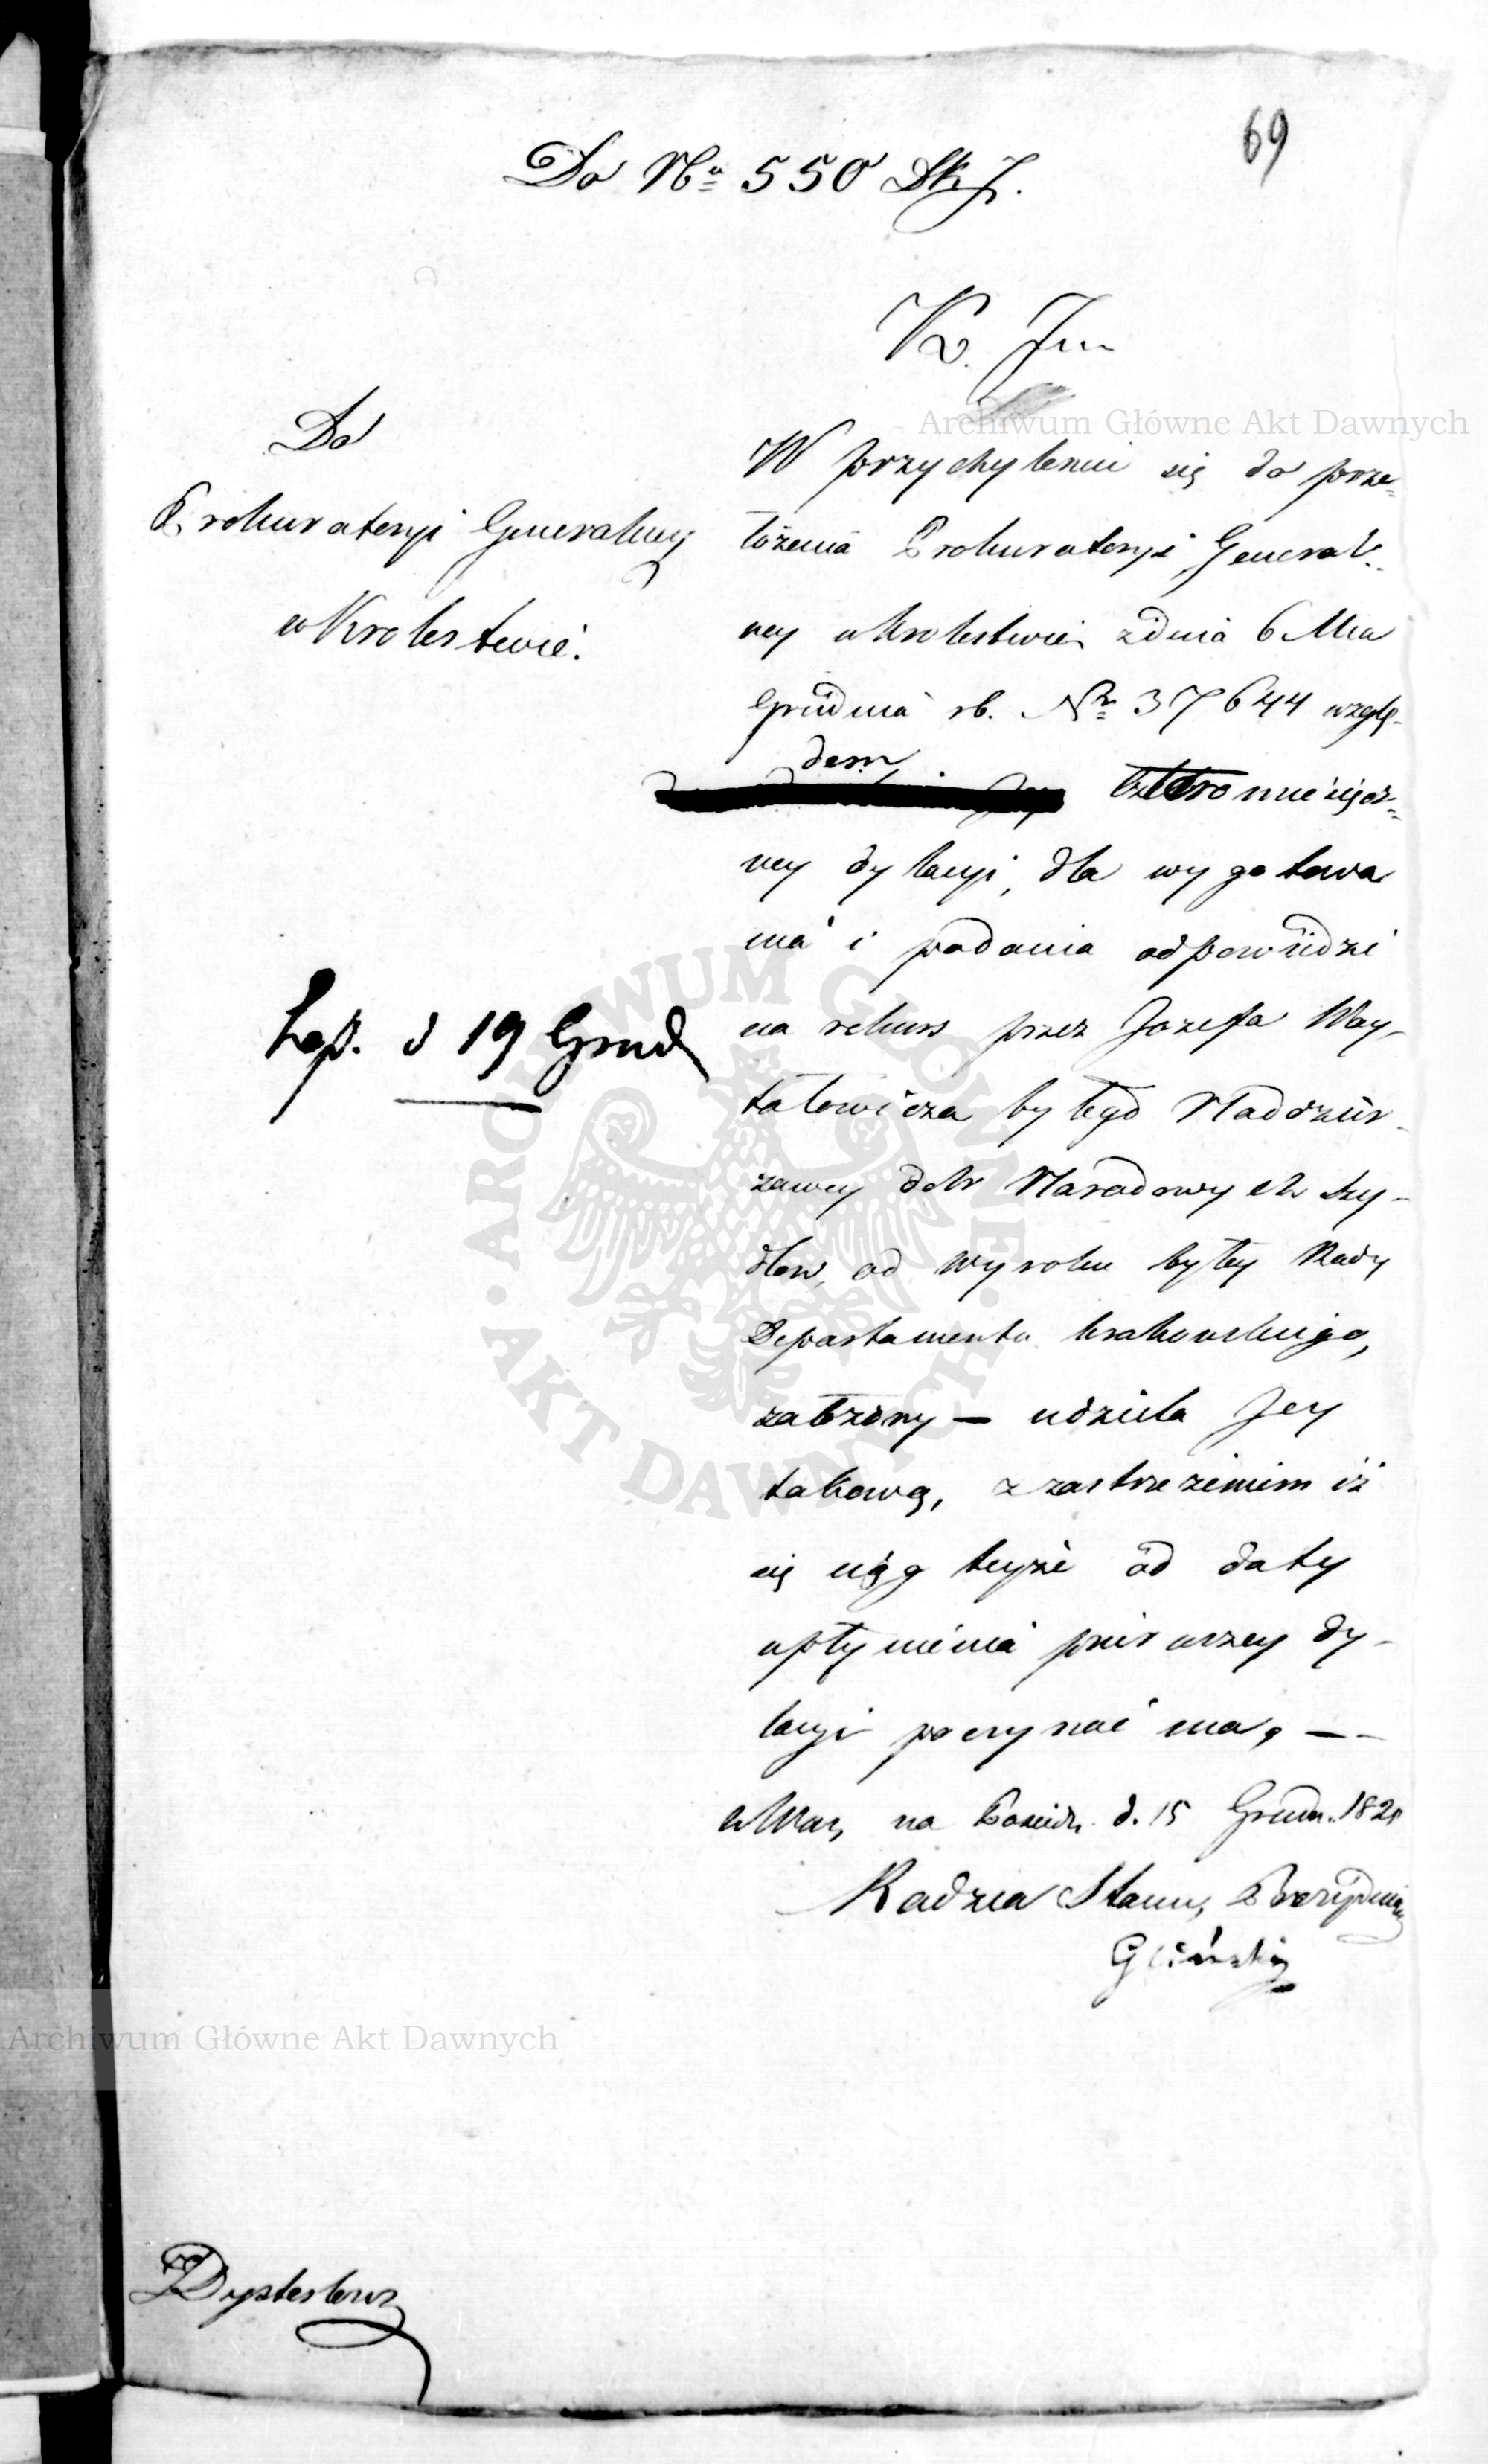 69
Do Nº 550 Dk J.
K. J
Do
Prokuratoryi Generalney
w Krolestwie.
W przychyleniu się do prze=
łożenia Prokuratoryi General=
ney w Krolestwie z dnia 6 Mca
Grudnia rb. Nr 37644 wzglę-
dem
cztero miesięcz=
ney dylacyi, dla wygotowa
nia i podania odpowiedzi
na rekurs przez Jozefa Woy-
tatowicza byłego Naddzier-
zawcy dobr Narodowych Szy-
dłow, od wyroku byłey Rady
Departamentu krakowskiego,
założony — udziela Jey
takową, z zastrzeżeniem iż
się ciąg teyże od daty
upłynienia pierwszey dy-
lacyi poczynać ma, —
w War, na Posiedz. d. 15 Grudn. 182
Radzca Stanu, Prezyduiący
Gliński
Exp. d 19 Grud
Archiwum Główne Akt Dawnych
ARCHIWUM GŁÓWNE · AKT DAWNYCH ·
Archiwum Główne Akt Dawnych